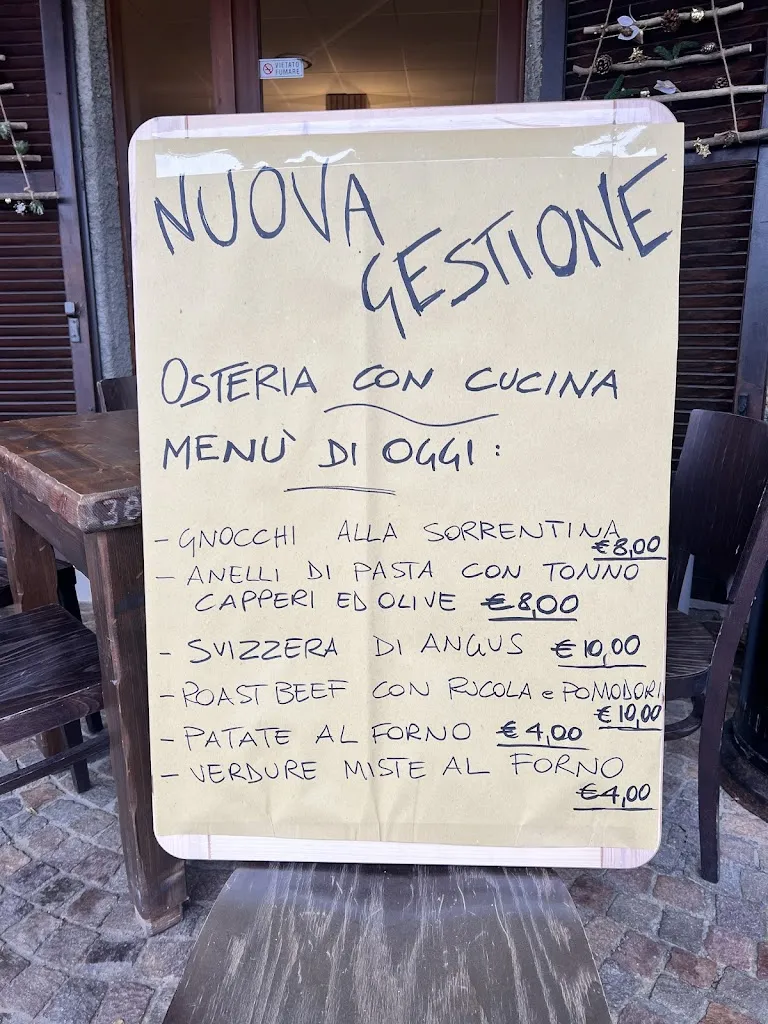 VIETATO
FUMARE
NUOVA
GESTIONE
OSTERIA CON CUCINA
MENU' DI OGGI :
- GNOCCHI ALLA SORRENTINA
€ 8,00
- ANELLI DI PASTA CON TONNO
CAPPERI ED OLIVE € 8,00
- SVIZZERA DI ANGUS € 10,00
- ROAST BEEF CON RUCOLA e POMODORI
€ 10,00
- PATATE AL FORNO € 4,00
- VERDURE MISTE AL FORNO
€ 4,00
38